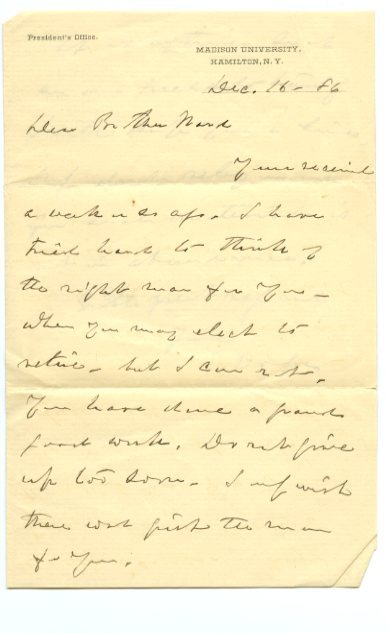 President's Office.
MADISON UNIVERSITY.
HAMILTON, N. Y.
Dec. 16 - 86
Dear Brother Ward
Yours received
a week or so ago. I have
tried hard to think of
the right man for you -
when you may elect to
retire - but I can not.
You have done a grand
good work. Do not give
up too soon. I wish
there was just the man
for you.